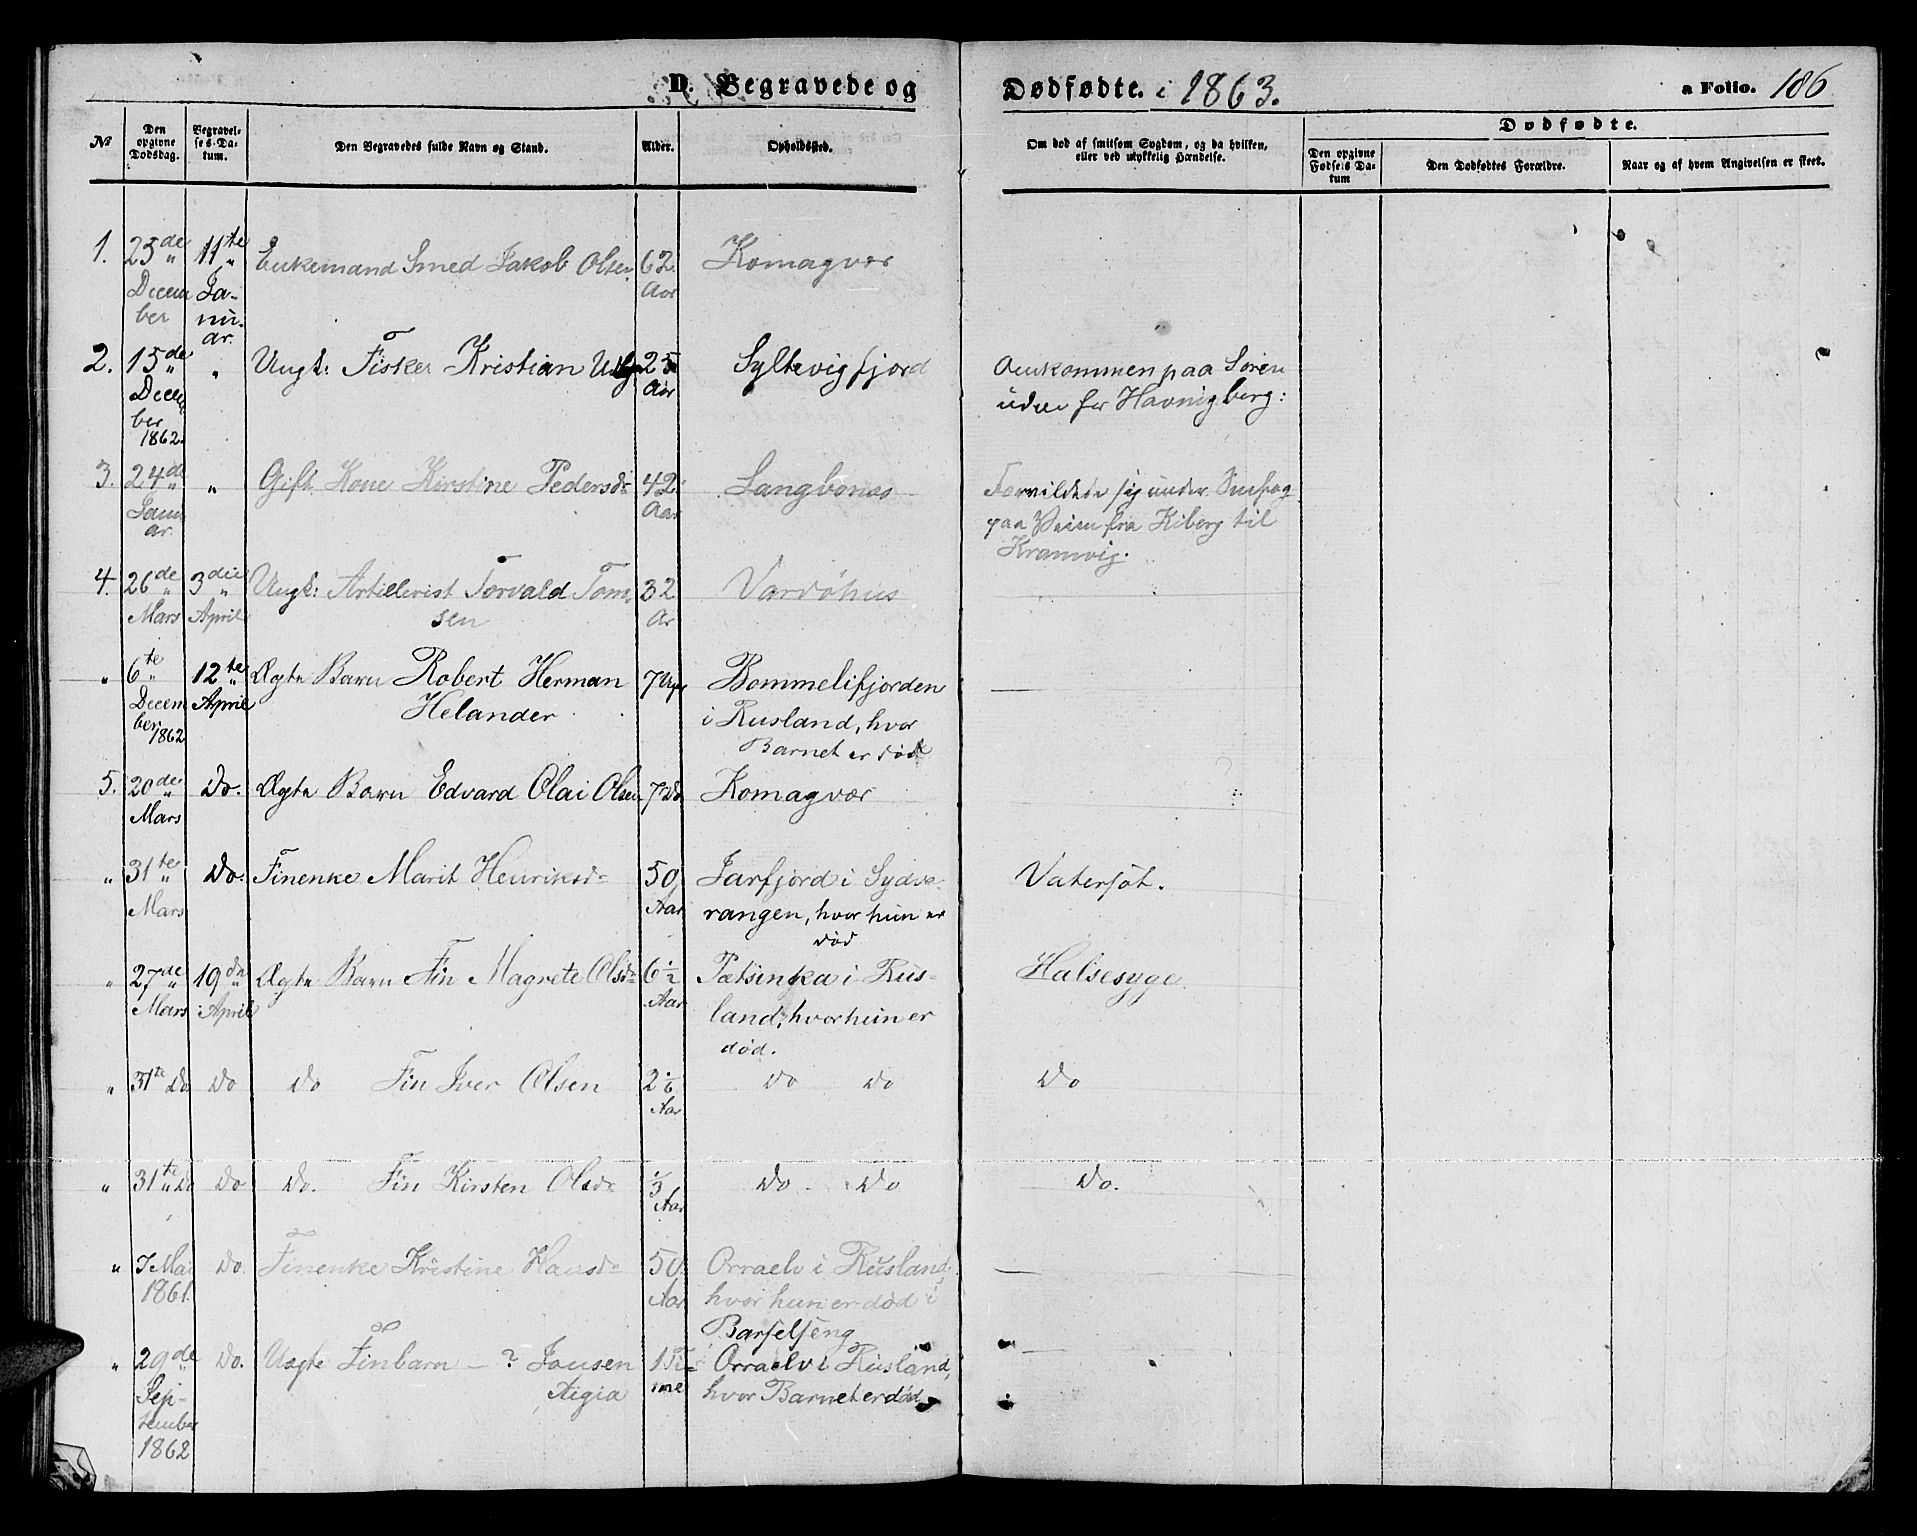 D. Begravede og Dødfødte. i 1863. a Folio. 186
№ Den opgivne Dødsdag. Begravelses-Datum. Den Begravedes fulde Navn og Stand. Alder. Opholdssted. Om død af smitsom Sygdom, og da hvilken, eller ved ulykkelig Hændelse. Dødfødte.
Den opgivne Fødsels Datum Den Dødfødtes Forældre. Naar og af hvem Angivelsen er skeet.
1. 23de 11te Enkemand Smed Jakob Olsen 62 Komagvær
Decem Ja- Aar
ber nu-
ar.
2. 15de " Ungk: Fisker Kristian 25 Syltevigfjord Omkommen paa Søren
Decem Aar uden for Havnigberg:
ber
1862.
3. 24de " Gift Kone Kirstine Pedersd- 42 Langbunes Forvildede sig under Snefog
Janu Aar paa Veien fra Kiberg til
ar. Kramvig.
4. 26de 3die Ungk: Artillerist Torvald Tom- 32 Vardøhus
Mars April sen Ar
" 6te 12te Ægte Barn Robert Herman 7 Uger Bommelifjorden
Decem April Helander i Rusland, hvor
ber 1862 Barnet er død
5. 20de Do. Ægte Barn Edvard Olai Olsen 7 Do Komagvær
Mars
" 31te Do. Finenke Marit Henriksd- 50 Jarfjord i Sydva- Vatersot.
Mars Aar rangen, hvor hun er
død
" 27de 19de Ægte Barn Fin Magrete Olsd- 6½ Petsinka i Rus- Halsesyge
Mars April Aar land, hvor hun er
død.
" 31te Do Do Do Fin Iver Olsen 2 1/6 Do Do Do
Aar
" 31te Do Do Do. Fin Kirsten Olsd- 1/3 Do Do Do.
Aar
" 7 Mai Do. Finenke Kristine Hansd- 50 Orraelv i Rusland,
1861. Aar hvor hun er død i
Barselseng
" 29de Do. Uægte Finbarn — ? Jansen 1 Ti- Orraelv i Rusland,
Sep- Aigia me hvor Barnet er død
tember
1862